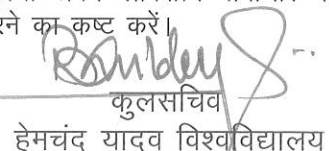 रने का कष्ट करें।
कुलसचिव
हेमचंद यादव विश्वविद्यालय